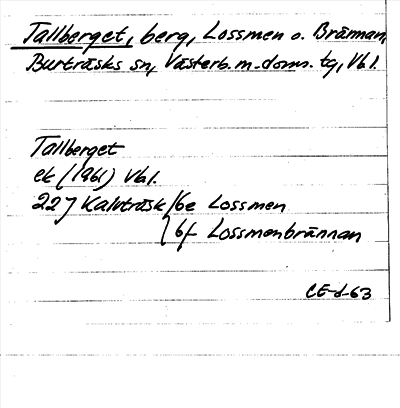 Tallberget, berg, Lossmen o. Brännan,
Burträsks sn, Västerb. m. doms. tg, Vb l.
Tallberget
ek (1961) Vb l.
22J Kalvträsk/6e Lossmen
6f Lossmenbrännan
CE-d-63